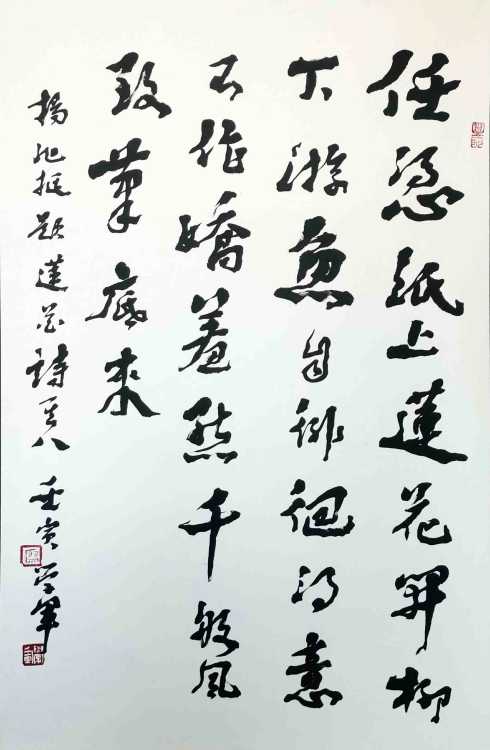 任憑紙上蓮花開柳
下游魚自徘徊得意
不作嬌羞態千般風
致筆底來
楊 題蓮花詩其八 壬寅 學軍